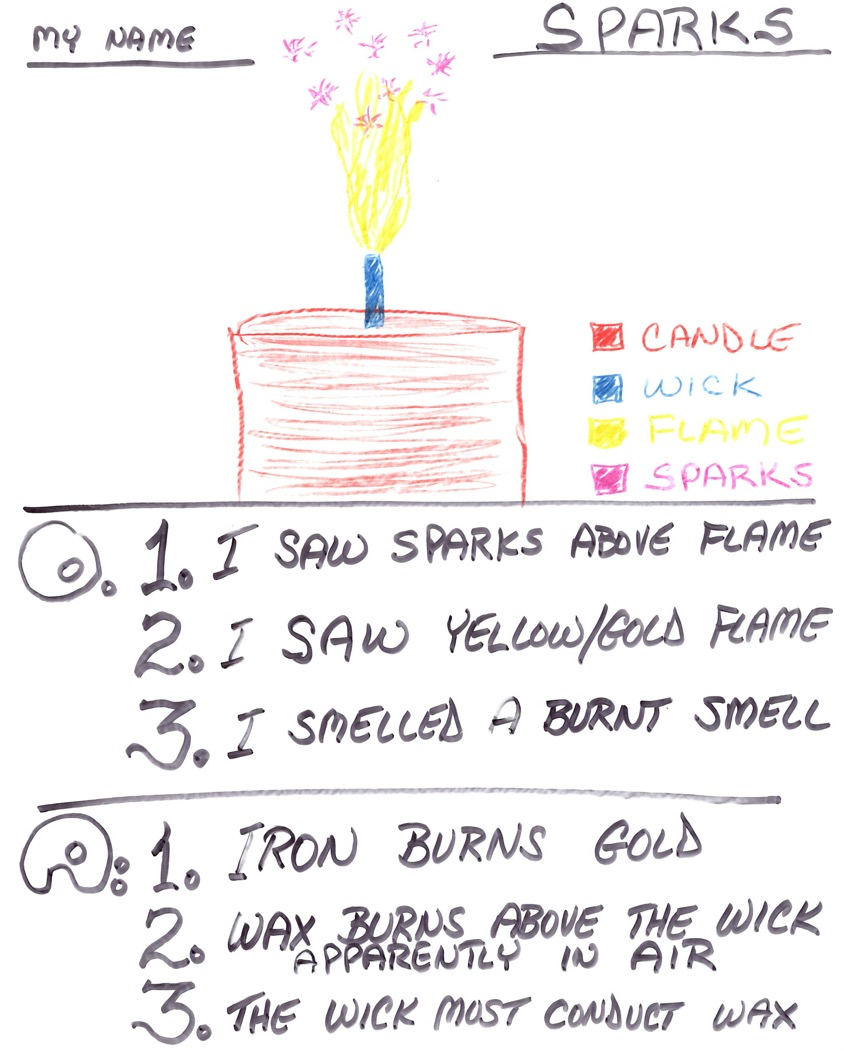 MY NAME
SPARKS
CANDLE
WICK
FLAME
SPARKS
O. 1. I SAW SPARKS ABOVE FLAME
2. I SAW YELLOW/GOLD FLAME
3. I SMELLED A BURNT SMELL
A: 1. IRON BURNS GOLD
2. WAX BURNS ABOVE THE WICK
APPARENTLY IN AIR
3. THE WICK MUST CONDUCT WAX